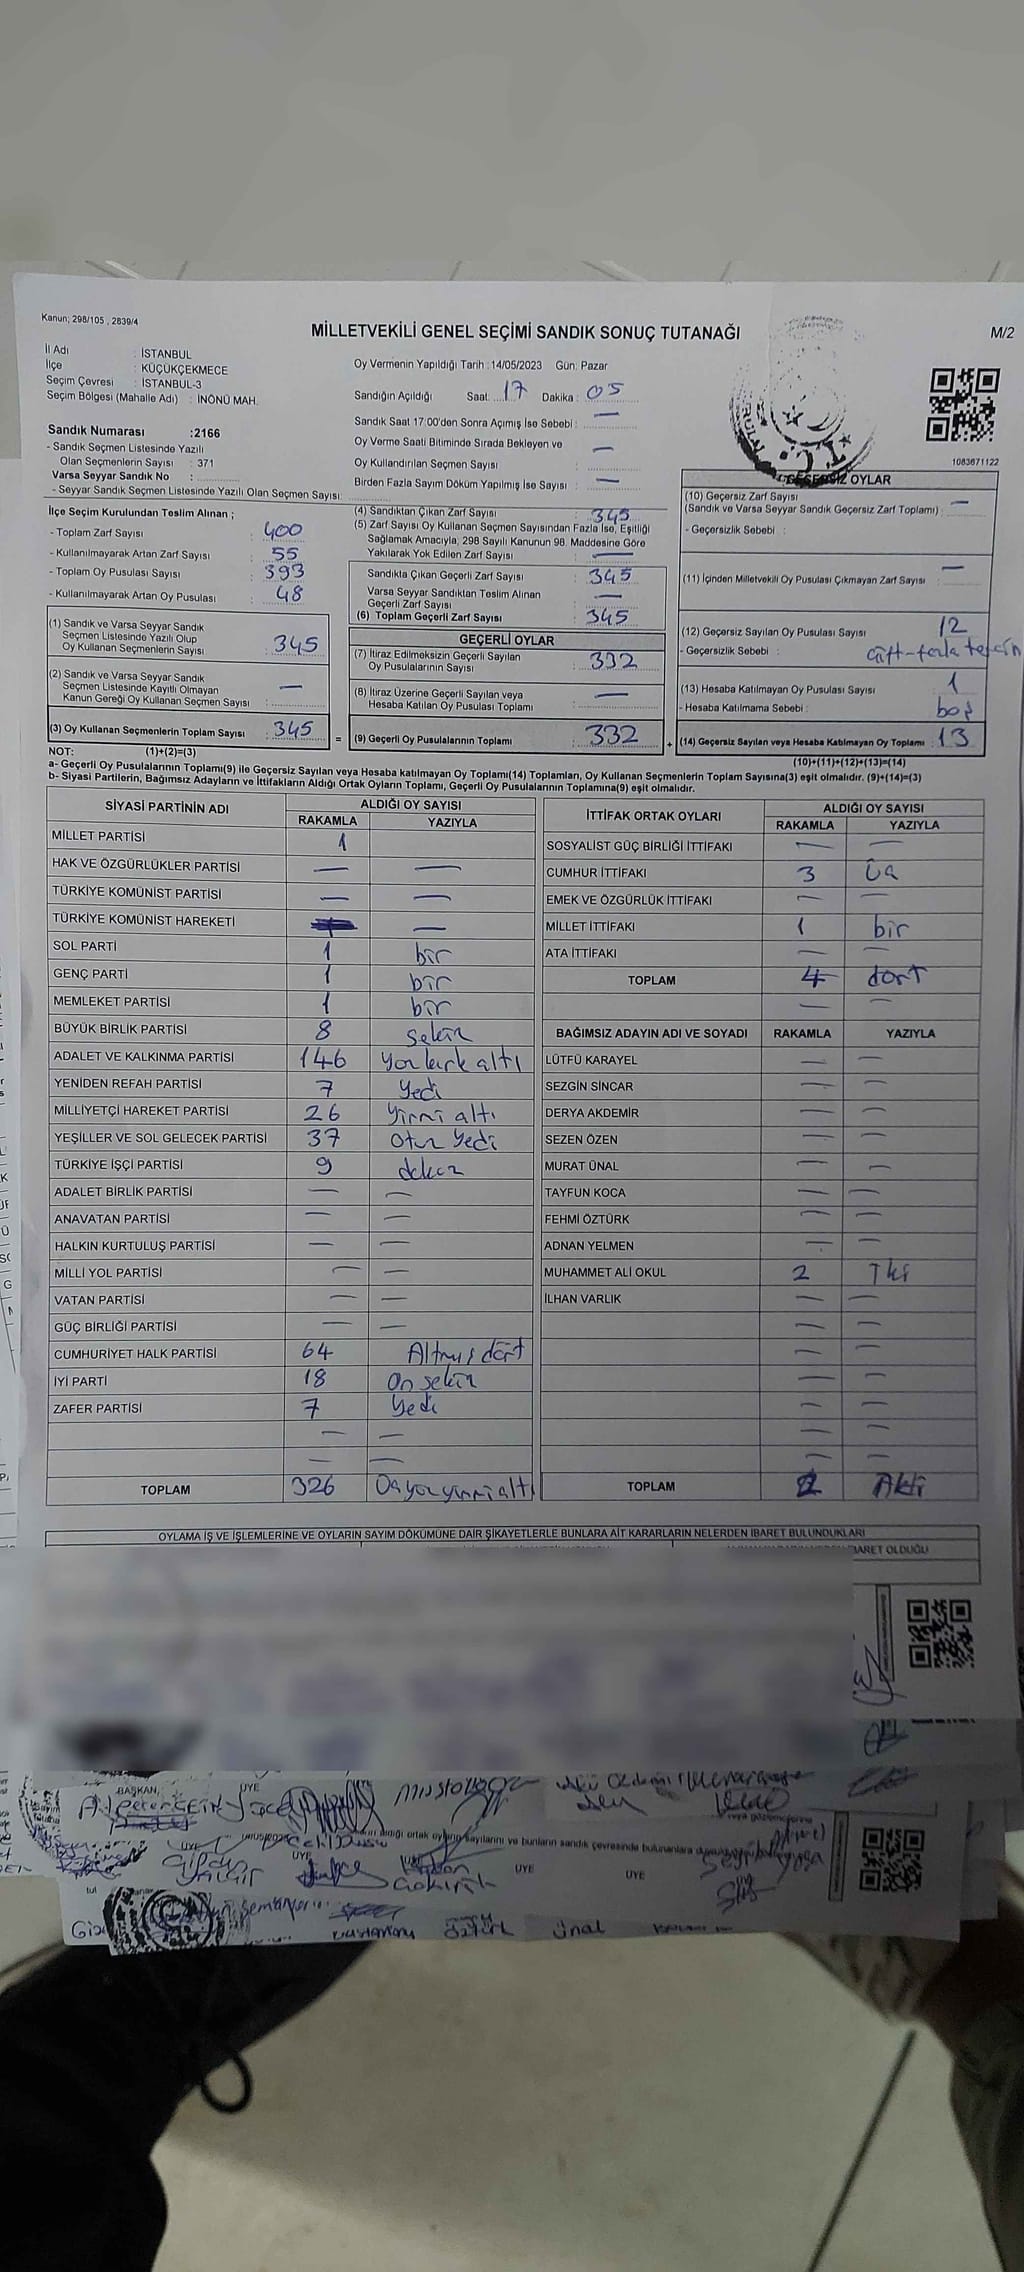 Kanun; 298/105 , 2839/4
MİLLETVEKİLİ GENEL SEÇİMİ SANDIK SONUÇ TUTANAĞI
M/2
İl Adı : İSTANBUL
İlçe : KÜÇÜKÇEKMECE
Seçim Çevresi : İSTANBUL-3
Seçim Bölgesi (Mahalle Adı) : İNÖNÜ MAH.
Sandık Numarası :2166
- Sandık Seçmen Listesinde Yazılı
Olan Seçmenlerin Sayısı : 371
Varsa Seyyar Sandık No :
- Seyyar Sandık Seçmen Listesinde Yazılı Olan Seçmen Sayısı:
Oy Vermenin Yapıldığı Tarih :14/05/2023 Gün: Pazar
Sandığın Açıldığı Saat: 17 Dakika : 05
Sandık Saat 17:00'den Sonra Açımış İse Sebebi : —
Oy Verme Saati Bitiminde Sırada Bekleyen ve
Oy Kullandırılan Seçmen Sayısı : —
Birden Fazla Sayım Döküm Yapılmış İse Sayısı : —
1083671122
İlçe Seçim Kurulundan Teslim Alınan ;
- Toplam Zarf Sayısı : 400
- Kullanılmayarak Artan Zarf Sayısı : 55
- Toplam Oy Pusulası Sayısı : 393
- Kullanılmayarak Artan Oy Pusulası : 48
(1) Sandık ve Varsa Seyyar Sandık
Seçmen Listesinde Yazılı Olup
Oy Kullanan Seçmenlerin Sayısı : 345
(2) Sandık ve Varsa Seyyar Sandık
Seçmen Listesinde Kayıtlı Olmayan
Kanun Gereği Oy Kullanan Seçmen Sayısı : —
(3) Oy Kullanan Seçmenlerin Toplam Sayısı : 345 =
(4) Sandıktan Çıkan Zarf Sayısı : 345
(5) Zarf Sayısı Oy Kullanan Seçmen Sayısından Fazla İse, Eşitliği
Sağlamak Amacıyla, 298 Sayılı Kanunun 98. Maddesine Göre
Yakılarak Yok Edilen Zarf Sayısı : —
Sandıkta Çıkan Geçerli Zarf Sayısı : 345
Varsa Seyyar Sandıktan Teslim Alınan
Geçerli Zarf Sayısı : —
(6) Toplam Geçerli Zarf Sayısı : 345
GEÇERLİ OYLAR
(7) İtiraz Edilmeksizin Geçerli Sayılan
Oy Pusulalarının Sayısı : 332
(8) İtiraz Üzerine Geçerli Sayılan veya
Hesaba Katılan Oy Pusulası Toplamı : —
(9) Geçerli Oy Pusulalarının Toplamı : 332 +
GEÇERSİZ OYLAR
(10) Geçersiz Zarf Sayısı
(Sandık ve Varsa Seyyar Sandık Geçersiz Zarf Toplamı) : —
- Geçersizlik Sebebi :
(11) İçinden Milletvekili Oy Pusulası Çıkmayan Zarf Sayısı : —
(12) Geçersiz Sayılan Oy Pusulası Sayısı : 12
- Geçersizlik Sebebi : çift-fazla tercih
(13) Hesaba Katılmayan Oy Pusulası Sayısı : 1
- Hesaba Katılmama Sebebi : boş
(14) Geçersiz Sayılan veya Hesaba Katılmayan Oy Toplamı : 13
NOT: (1)+(2)=(3)
(10)+(11)+(12)+(13)=(14)
a- Geçerli Oy Pusulalarının Toplamı(9) ile Geçersiz Sayılan veya Hesaba katılmayan Oy Toplamı(14) Toplamları, Oy Kullanan Seçmenlerin Toplam Sayısına(3) eşit olmalıdır. (9)+(14)=(3)
b- Siyasi Partilerin, Bağımsız Adayların ve İttifakların Aldığı Ortak Oyların Toplamı, Geçerli Oy Pusulalarının Toplamına(9) eşit olmalıdır.
SİYASİ PARTİNİN ADI ALDIĞI OY SAYISI
RAKAMLA YAZIYLA
MİLLET PARTİSİ 1
HAK VE ÖZGÜRLÜKLER PARTİSİ — —
TÜRKİYE KOMÜNİST PARTİSİ — —
TÜRKİYE KOMÜNİST HAREKETİ —
SOL PARTİ 1 bir
GENÇ PARTİ 1 bir
MEMLEKET PARTİSİ 1 bir
BÜYÜK BİRLİK PARTİSİ 8 sekiz
ADALET VE KALKINMA PARTİSİ 146 yüz kırk altı
YENİDEN REFAH PARTİSİ 7 yedi
MİLLİYETÇİ HAREKET PARTİSİ 26 yirmi altı
YEŞİLLER VE SOL GELECEK PARTİSİ 37 otuz yedi
TÜRKİYE İŞÇİ PARTİSİ 9 dokuz
ADALET BİRLİK PARTİSİ — —
ANAVATAN PARTİSİ — —
HALKIN KURTULUŞ PARTİSİ — —
MİLLİ YOL PARTİSİ — —
VATAN PARTİSİ — —
GÜÇ BİRLİĞİ PARTİSİ — —
CUMHURİYET HALK PARTİSİ 64 Altmış dört
İYİ PARTİ 18 on sekiz
ZAFER PARTİSİ 7 yedi
— —
— —
TOPLAM 326 Üçyüzyirmialtı
İTTİFAK ORTAK OYLARI ALDIĞI OY SAYISI
RAKAMLA YAZIYLA
SOSYALİST GÜÇ BİRLİĞİ İTTİFAKI — —
CUMHUR İTTİFAKI 3 üç
EMEK VE ÖZGÜRLÜK İTTİFAKI — —
MİLLET İTTİFAKI 1 bir
ATA İTTİFAKI — —
TOPLAM 4 dört
— —
BAĞIMSIZ ADAYIN ADI VE SOYADI RAKAMLA YAZIYLA
LÜTFÜ KARAYEL — —
SEZGİN SİNCAR — —
DERYA AKDEMİR — —
SEZEN ÖZEN — —
MURAT ÜNAL — —
TAYFUN KOCA — —
FEHMİ ÖZTÜRK — —
ADNAN YELMEN — —
MUHAMMET ALİ OKUL 2 İki
İLHAN VARLIK — —
— —
— —
— —
— —
— —
— —
TOPLAM 2 iki
OYLAMA İŞ VE İŞLEMLERİNE VE OYLARIN SAYIM DÖKÜMÜNE DAİR ŞİKAYETLERLE BUNLARA AİT KARARLARIN NELERDEN İBARET BULUNDUKLARI
İBARET OLDUĞU
BAŞKAN ÜYE
aldığı ortak oy sayılarını ve bunların sandık çevresinde bulunanlara
ÜYE ÜYE ÜYE ÜYE
öztürk ünal